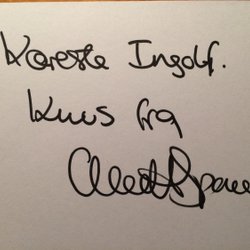 Kæreste Ingolf.
Knus fra